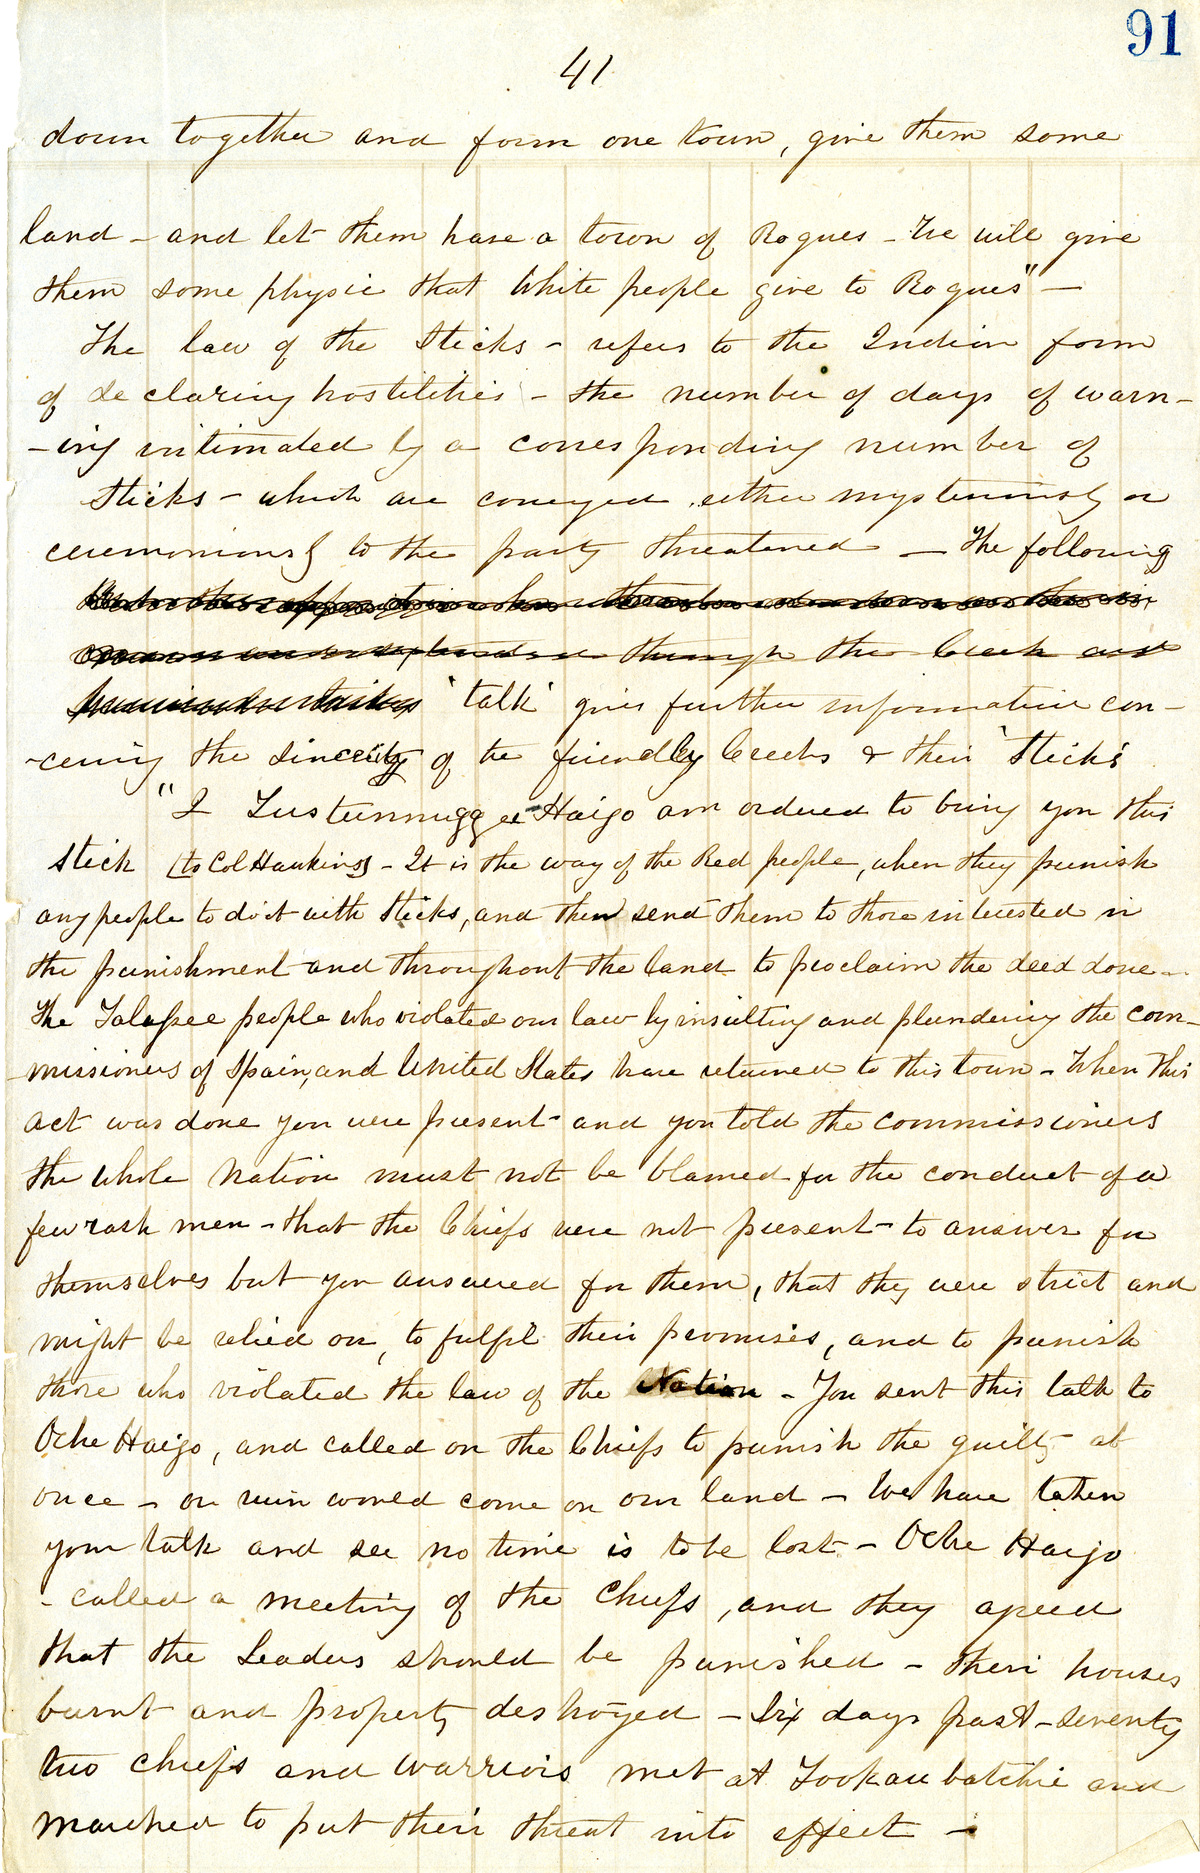 91
41
down together and form one town, give them some
land - and let them have a town of Rogues - We will give
them some physic that White people give to Rogues" -
The law of the Sticks - refers to the Indian form
of declaring hostilities - the number of days of warn-
-ing intimated by a corresponding number of
Sticks - which are conveyed either mysteriously or
ceremoniously to the party threatened - The following
through the Creek and
'talk' gives further information con-
-cerning the sincerity of the friendly Creeks & their 'Sticks'
"I Tustunnuggee Haigo am ordered to bring you this
Stick [to Col Hawkins] - It is the way of the Red people, when they punish
any people to do it with Sticks, and then send them to those interested in
the punishment and throughout the land to proclaim the deed done -
The Talassee people who violated our law by insulting and plundering the com-
missioners of Spain, and United States have returned to this town - When this
act was done you were present - and you told the commissioners
the whole Nation must not be blamed for the conduct of a
few rash men - that the Chiefs were not present - to answer for
themselves but you answered for them, that they were strict and
might be relied on, to fulfil their promises, and to punish
those who violated the law of the Nation - You sent this talk to
Oche Haigo, and called on the Chiefs to punish the guilty at
once - or ruin would come on our land - We have taken
your talk and see no time is to be lost - Oche Haigo
- called a meeting of the Chiefs, and they agreed
that the Leaders should be punished - their houses
burnt and property destroyed - Six days past - seventy
two chiefs and warriors met at Tookaubatchie and
marched to put their threat into effect -